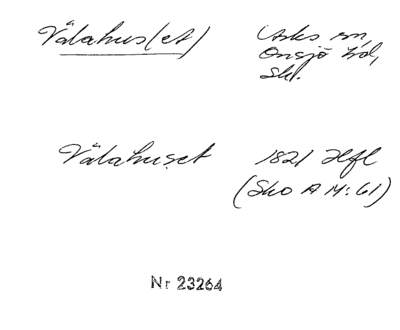 Välahus(et) Asks sn,
Onsjö hd,
Sk.
Välahuset 1821 Hfl
(Sko A IV:61)
Nr 23264